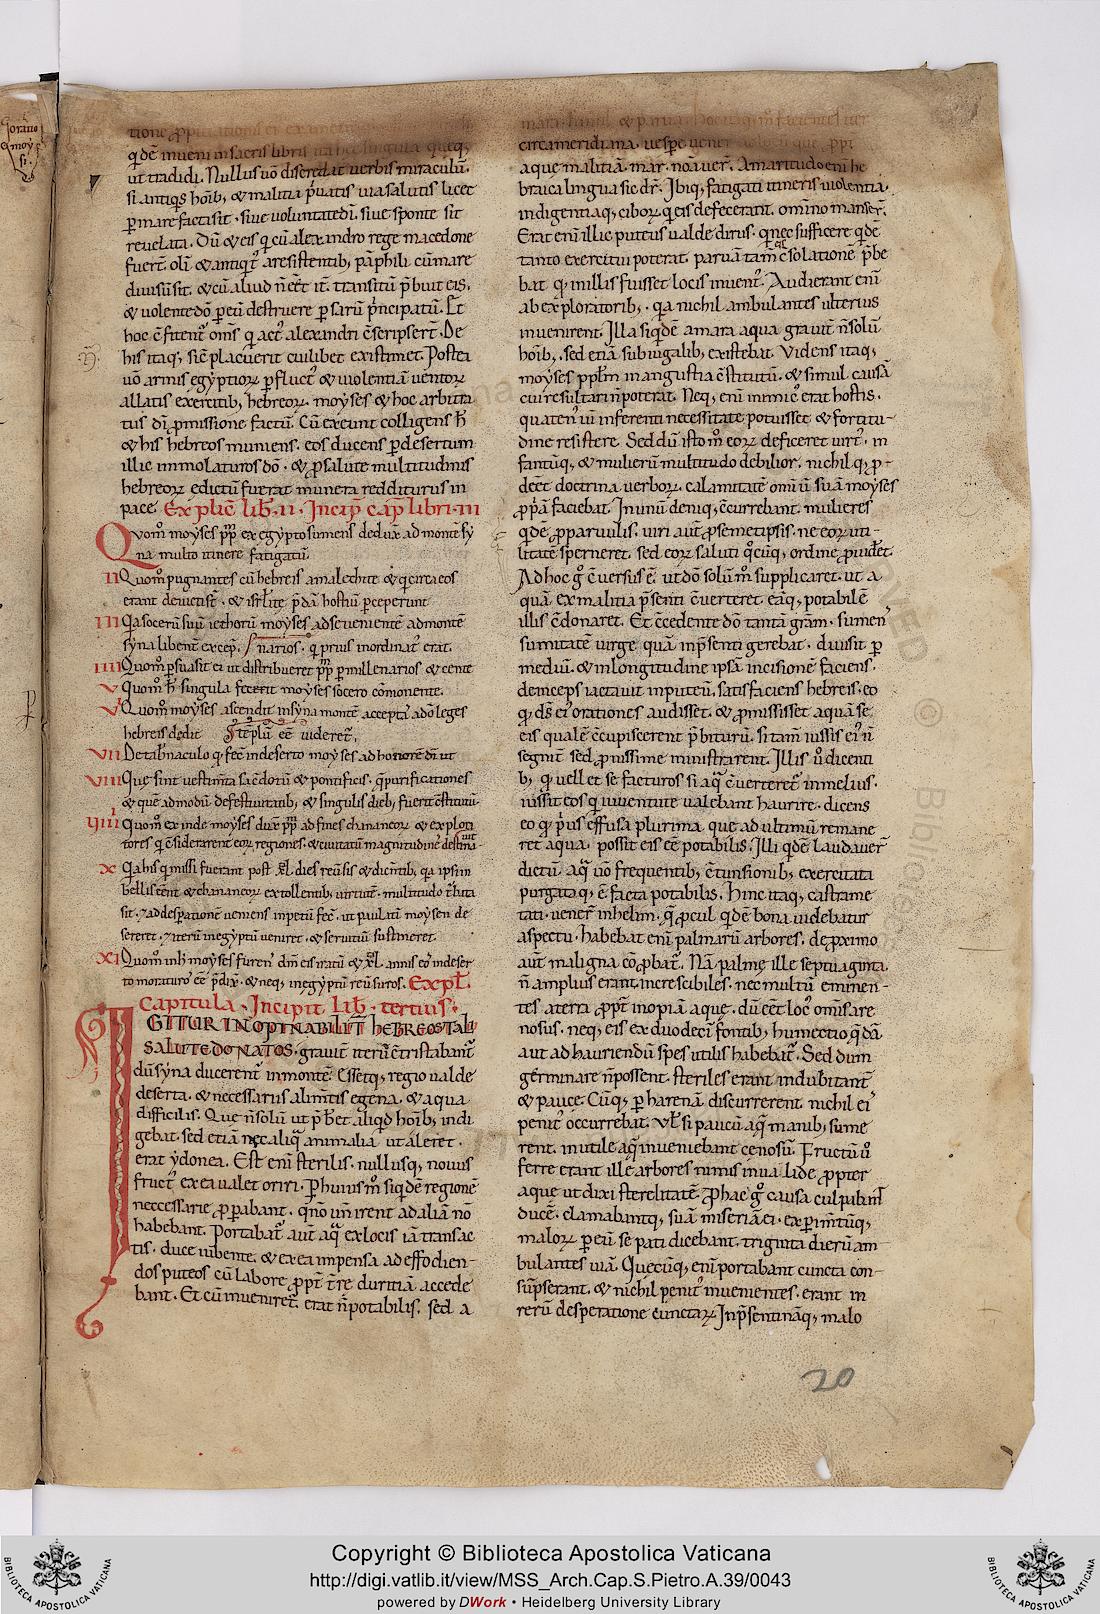 oratio
moy
si.
tione
qdē inveni in sacris libris ita hec singula queq;
ut tradidi. Nullus ūo discredat verbis miraculū.
si antiqs hoīb; & malitia pvatis via salutis licet
p mare facta sit. sive voluntate dī. sive sponte sit
revelata. Dū & eis q cū alexandro rege macedone
fuerт olī & antiqt' a resistentib; pāphilicū mare
divisū sit. & cū aliud ñ eēt it' transitū p̄buit eis.
& volente dō p eū destruere psarū p̄ncipatū. Et
hoc c̄fitent' om̄s q act' alexandri c̄scripserт. De
his itaq; sic placuerit cuilibet existimet. Postea
ūo armis egyptioꝝ p fluct' & violentiā ventoꝝ
allatis exercitib; hebreoꝝ. moyses & hoc arbitra
tus dī pmissione factū. Cū exeunt colligens h̄
& his hebreos muniens. eos ducens p desertum
illic immolaturos dō. & p salute multitudinis
hebreoꝝ edictū fuerat munera redditurus in
pace. Explic̄ lib̄. ii. Incip̄ cap̄ libri. iii
Quom̄ moyses pp̄l̄m ex egypto sumens dedux̄ ad montē sy
na multo itinere fatigatū.
II Quom̄ pugnantes cū hebreis amalechite & q circa eos
erant devicti sē. & isrl̄ite p̄dā hostiū pceperunt
III Qa socerū suū iethorū moyses ad se venientē ad montē
syna libent' excep̄. narios. q prius inordinat' erat.
IIII Quom̄ psuasit ei ut distribueret pp̄l̄m p millenarios & cente
V Quom̄ h̄ singula fecerit moyses socero cōmonente.
VI Quom̄ moyses ascendit in syna montē accept' a dō leges
hebreis dedit templū eē videret'.
VII De tab̄naculo q fec̄ in deserto moyses ad honorē dī ut
VIII Que sint vestim̄ta sac̄dotū & pontificis. q purificationes
& que admodū de festivitatib; & singulis dieb; fuerit c̄stitutū.
VIIII Quom̄ exinde moyses dux̄ pp̄l̄m ad fines chananeoꝝ & explora
tores q c̄siderarent eorꝝ regiones. & civitatū magnitudinē destinavit
X Qa his q missi fuerant post xl. dies reūsis & dicentib; qa ipsi in
bellis c̄ēnt & chananeoꝝ extollentib; virtutē. multitudo t̄bata
sit. & ad desperationē veniens impetū fec̄. ut paulatī moysen de
sereret. & iterū in egyptū veniret. & servitiū sustineret.
XI Quom̄ inh̄ moyses furen' dm̄ eis iratū & xl. annis eo' in deser
to moraturo' eē p̄dix̄. & neq; in egyptū reūsuros. Expl̄.
Capitula. Incipit Lib̄. tertius.
IGITUR INOPINABILIT' HEBREOS TALI
SALUTE DONATOS. gravit' iterū c̄tristabant'
dū syna ducerent' in montē. Essetq; regio valde
deserta. & necessariis alim̄tis egena. & aqua
difficilis. Que n̄ solū ut p̄bet aliqd hoīb; indi
gebat. sed etiā nec aliq animalia ut aleret.
erat ydonea. Est enī sterilis. nullusq; novus
fruct' ex ea valet oriri. P huius m̄ siqdē regionē
neccessarie pparabant. q no un̄ irent ad aliā nō
habebant. Portabat' aut̄ aq̄ ex locis iā transac
tis. duce iubente. & ex ea impensa ad effodien-
dos puteos cū labore ppt' t̄re duritiā accede
bant. Et cū inveniret'. erat n̄ potabilis. sed a
mara. simul & parva. hoc itaq; m̄ facientes iter
circa meridiana. vespe vener
aque malitiā. mar. noāver'. Amaritudo enī he
braica lingua sic dr̄. Ibiq; fatigati itineris violentia.
indigentiaq; ciboꝝ q eis defecerant. omīno manser'.
Erat enī illic puteus valde dirus. q nec sufficere qdē
tanto exercitui poterat. parvā tam̄ c̄solatione p̄be
bat q in illis fuisset locis invent'. Audierant enī
ab exploratorib;. qa nichil ambulantes ulterius
invenirent. Illa siqdē amara aqua gravit' n̄ solū
hoīb;. sed etiā subiugalib; existebat. Videns itaq;
moyses pplm̄ in angustia c̄stitutū. & simul causā
cui resultari n̄ poterat. Neq; enī inimic' erat hostis.
quaten' vī inferenti necessitate potuisset & fortitu-
dine resistere. Sed dū isto m̄ eorꝝ deficeret virt'. in
fantūq; & mulierū multitudo debilior. nichil q p-
dēēt doctrina verboꝝ. calamitatē omniū suā moyses
pp̄ā faciebat. In unū deniq; c̄currebant. mulieres
qdē p parvulis. viri aut̄ p semetipsis. ne eoꝝ uti-
litatē sperneret. sed eoꝝ saluti qcūq; ordine pvidet'.
Ad hoc g° c̄versus ē. ut dō solū m̄ supplicaret. ut a
quā ex malitia p̄senti c̄verteret. eāq; potabilē
illis c̄donaret. Et c̄cedente dō tantā grām. sumen'
sumitatē virge quā in p̄senti gerebat. divisit p
mediū. & in longitudine ipsā incisionē faciens.
deinceps iactavit in puteū. satisfaciens hebreis. eo
q ds̄ ei' orationes audisset. & pmisisset aquā se
eis qualē c̄cupiscerent p̄biturū. si tam̄ iussis ei' n̄
segnit' sed pnissime ministrarent. Illis ū dicenti
b; q vellet se facturos si aq̄ c̄verteret' in melius.
iussit eos q iuventute valebant haurire. dicens
eo q p̄us effusa plurima. que ad ultimū remane
ret aqua. possit eis eē potabilis. Illi qdē laudaver'
dictū. aq̄ ūo frequentib; c̄tunsionib; exercitata
purgataq; ē facta potabilis. Hinc itaq; castrame
tati. vener' in helim. q pcul qdē bona videbatur
aspectu. habebat enī palmarū arbores. de pximo
aut̄ maligna cōpbat'. Nā palme ille septuaginta
n̄ amplius erant. increscibiles. nec multū eminen-
tes a terra ppt' inopiā aque. dū eēt loc' om̄s are
nosus. neq; eis ex duodecī fontib; humectio qdā
aut ad hauriendū spes utilis habebat'. Sed dum
germinare n̄ possent. steriles erant indubitant'
& pauce. Cūq; p harenā discurrerent. nichil ei'
penit' occurrebat. Ul̄ si paucū aq̄ manib; sume
rent. inutile aq̄ inveniebant cenosū. Fructū ū
ferre erant ille arbores nimis invalide. propter
aque ut dixi sterelitatē. P hac g° causa culpabant'
ducē. clamabantq; suā miseriā ei. exp̄im̄tūq;
maloꝝ p eū se pati dicebant. triginta dierū am
bulantes viā. Quecūq; enī portabant cuncta con-
sūpserant. & nichil penit' invenientes. erant in
rerū desperatione cunctaꝝ. In p̄senti nāq; malo
20
Copyright © Biblioteca Apostolica Vaticana
http://digi.vatlib.it/view/MSS_Arch.Cap.S.Pietro.A.39/0043
powered by DWork • Heidelberg University Library